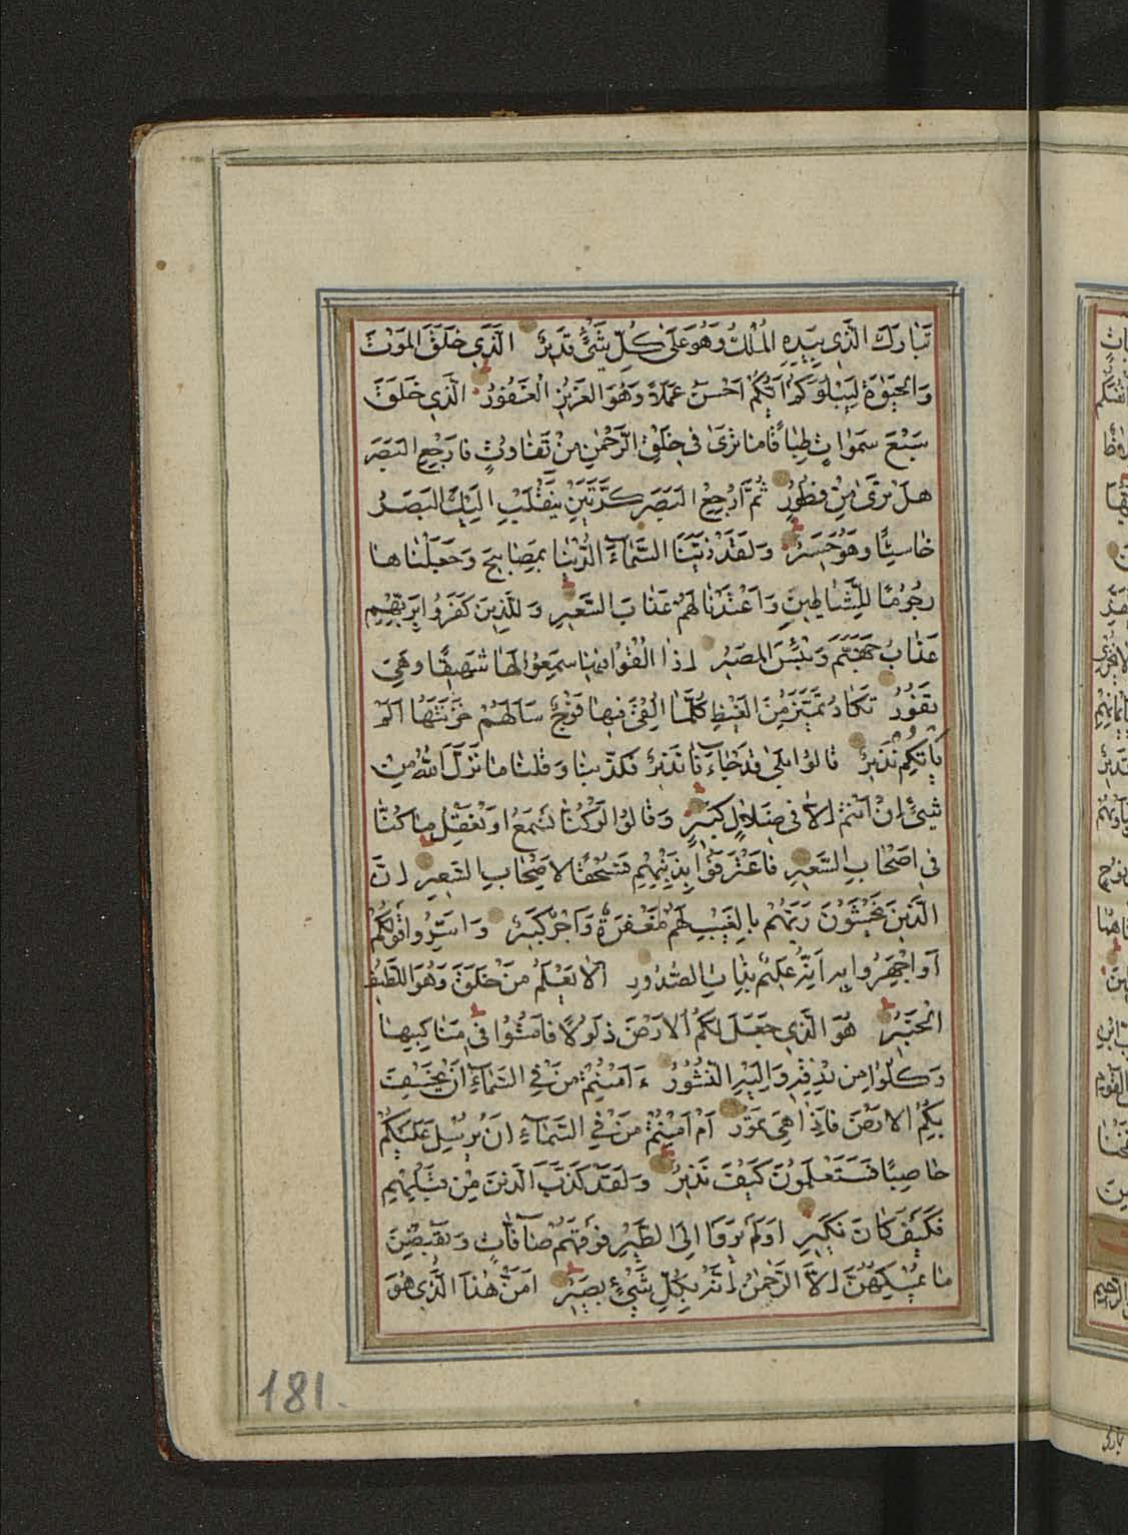 تَبَارَكَ الَّذِي بِيَدِهِ الْمُلْكُ وَهُوَ عَلَى كُلِّ شَيْءٍ قَدِيرٌ الَّذِي خَلَقَ الْمَوْتَ
وَالْحَيٰوةَ لِيَبْلُوَكُمْ اَيُّكُمْ اَحْسَنُ عَمَلًا وَهُوَ الْعَزِيزُ الْغَفُورُ الَّذِي خَلَقَ
سَبْعَ سَمٰوَاتٍ طِبَاقًا مَا تَرٰى فِي خَلْقِ الرَّحْمٰنِ مِنْ تَفَاوُتٍ فَارْجِعِ الْبَصَرَ
هَلْ تَرٰى مِنْ فُطُورٍ ثُمَّ ارْجِعِ الْبَصَرَ كَرَّتَيْنِ يَنْقَلِبْ اِلَيْكَ الْبَصَرُ
خَاسِئًا وَهُوَ حَسِيرٌ وَلَقَدْ زَيَّنَّا السَّمَاءَ الدُّنْيَا بِمَصَابِيحَ وَجَعَلْنَاهَا
رُجُومًا لِلشَّيَاطِينِ وَاَعْتَدْنَا لَهُمْ عَذَابَ السَّعِيرِ وَلِلَّذِينَ كَفَرُوا بِرَبِّهِمْ
عَذَابُ جَهَنَّمَ وَبِئْسَ الْمَصِيرُ اِذَا اُلْقُوا فِيهَا سَمِعُوا لَهَا شَهِيقًا وَهِيَ
تَفُورُ تَكَادُ تَمَيَّزُ مِنَ الْغَيْظِ كُلَّمَا اُلْقِيَ فِيهَا فَوْجٌ سَاَلَهُمْ خَزَنَتُهَا اَلَمْ
يَأْتِكُمْ نَذِيرٌ قَالُوا بَلٰى قَدْ جَاءَنَا نَذِيرٌ فَكَذَّبْنَا وَقُلْنَا مَا نَزَّلَ اللّٰهُ مِنْ
شَيْءٍ اِنْ اَنْتُمْ اِلَّا فِي ضَلَالٍ كَبِيرٍ وَقَالُوا لَوْ كُنَّا نَسْمَعُ اَوْ نَعْقِلُ مَا كُنَّا
فِي اَصْحَابِ السَّعِيرِ فَاعْتَرَفُوا بِذَنْبِهِمْ فَسُحْقًا لِاَصْحَابِ السَّعِيرِ اِنَّ
الَّذِينَ يَخْشَوْنَ رَبَّهُمْ بِالْغَيْبِ لَهُمْ مَغْفِرَةٌ وَاَجْرٌ كَبِيرٌ وَاَسِرُّوا قَوْلَكُمْ
اَوِ اجْهَرُوا بِهِ اِنَّهُ عَلِيمٌ بِذَاتِ الصُّدُورِ اَلَا يَعْلَمُ مَنْ خَلَقَ وَهُوَ اللَّطِيفُ
الْخَبِيرُ هُوَ الَّذِي جَعَلَ لَكُمُ الْاَرْضَ ذَلُولًا فَامْشُوا فِي مَنَاكِبِهَا
وَكُلُوا مِنْ رِزْقِهِ وَاِلَيْهِ النُّشُورُ ءَاَمِنْتُمْ مَنْ فِي السَّمَاءِ اَنْ يَخْسِفَ
بِكُمُ الْاَرْضَ فَاِذَا هِيَ تَمُورُ اَمْ اَمِنْتُمْ مَنْ فِي السَّمَاءِ اَنْ يُرْسِلَ عَلَيْكُمْ
حَاصِبًا فَسَتَعْلَمُونَ كَيْفَ نَذِيرِ وَلَقَدْ كَذَّبَ الَّذِينَ مِنْ قَبْلِهِمْ
فَكَيْفَ كَانَ نَكِيرِ اَوَلَمْ يَرَوْا اِلَى الطَّيْرِ فَوْقَهُمْ صَافَّاتٍ وَيَقْبِضْنَ
مَا يُمْسِكُهُنَّ اِلَّا الرَّحْمٰنُ اِنَّهُ بِكُلِّ شَيْءٍ بَصِيرٌ اَمَّنْ هٰذَا الَّذِي هُوَ
181.